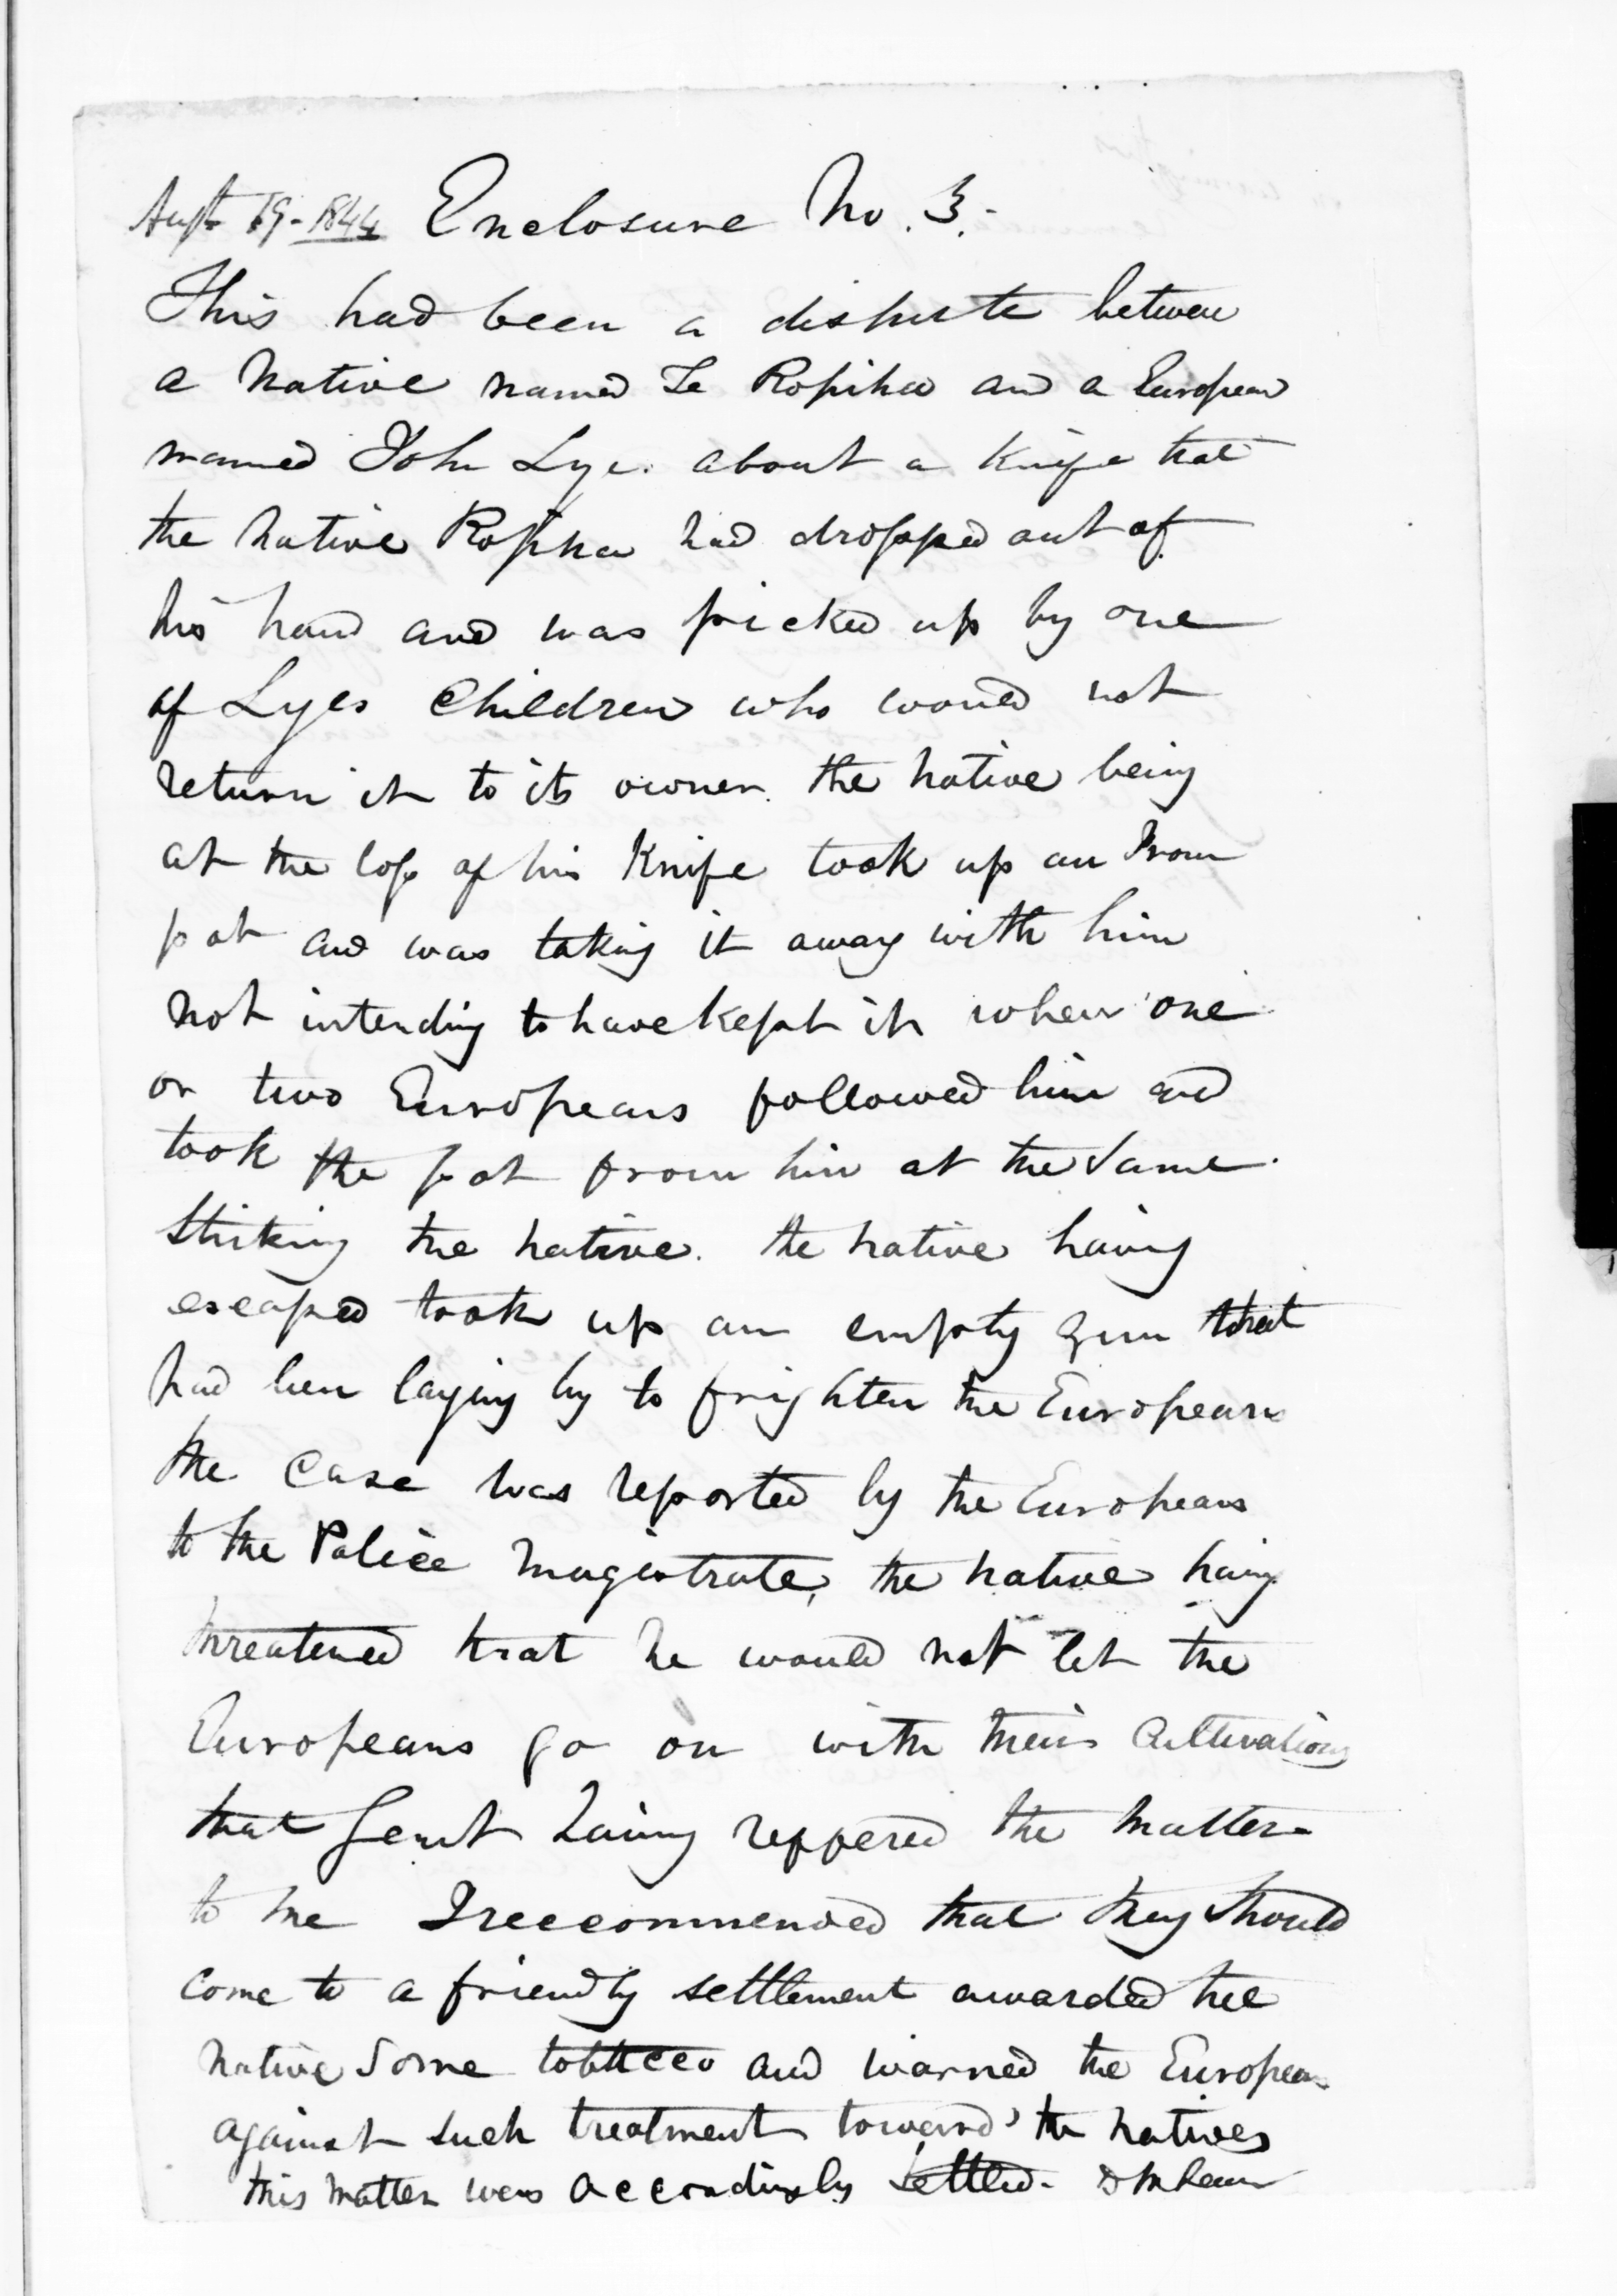 Augt 19 - 1844 Enclosure No. 3.
This had been a dispute between
a Native named Te Ropiha and a European
named John Lye. about a Knife that
the native Ropiha had dropped out of
his hand and was picked up by one
of Lyes Children who would not
return it to its owner. the native being
at the loss of his Knife took up an Iron
pot and was taking it away with him
not intending to have kept it when one
or two Europeans followed him and
took the pot from him at the same
striking the native. the native having
escaped took up an empty gun that
had been laying by to frighten the Europeans
the Case was reported by the Europeans
to the Police Magistrate, the native having
threatened that he would not let the
Europeans go on with their Cultivations
that Gent having reffered the matter
to me I reccommended that they should
come to a friendly settlement awarded the
native Some tobacco and warned the European
against such treatment toward's the natives
this matter was accordingly settled. D McLean